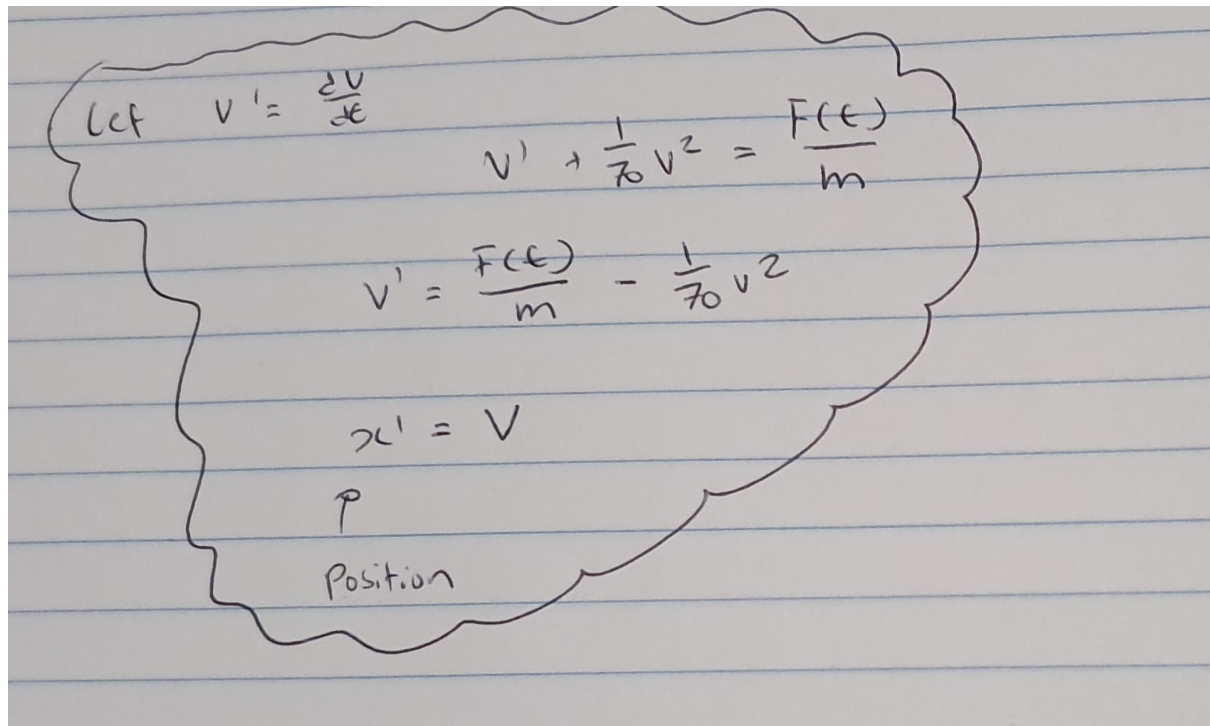 Let v' = dv/dt
v' + 1/70 v² = F(t)/m
v' = F(t)/m - 1/70 v²
x' = V
↑
Position